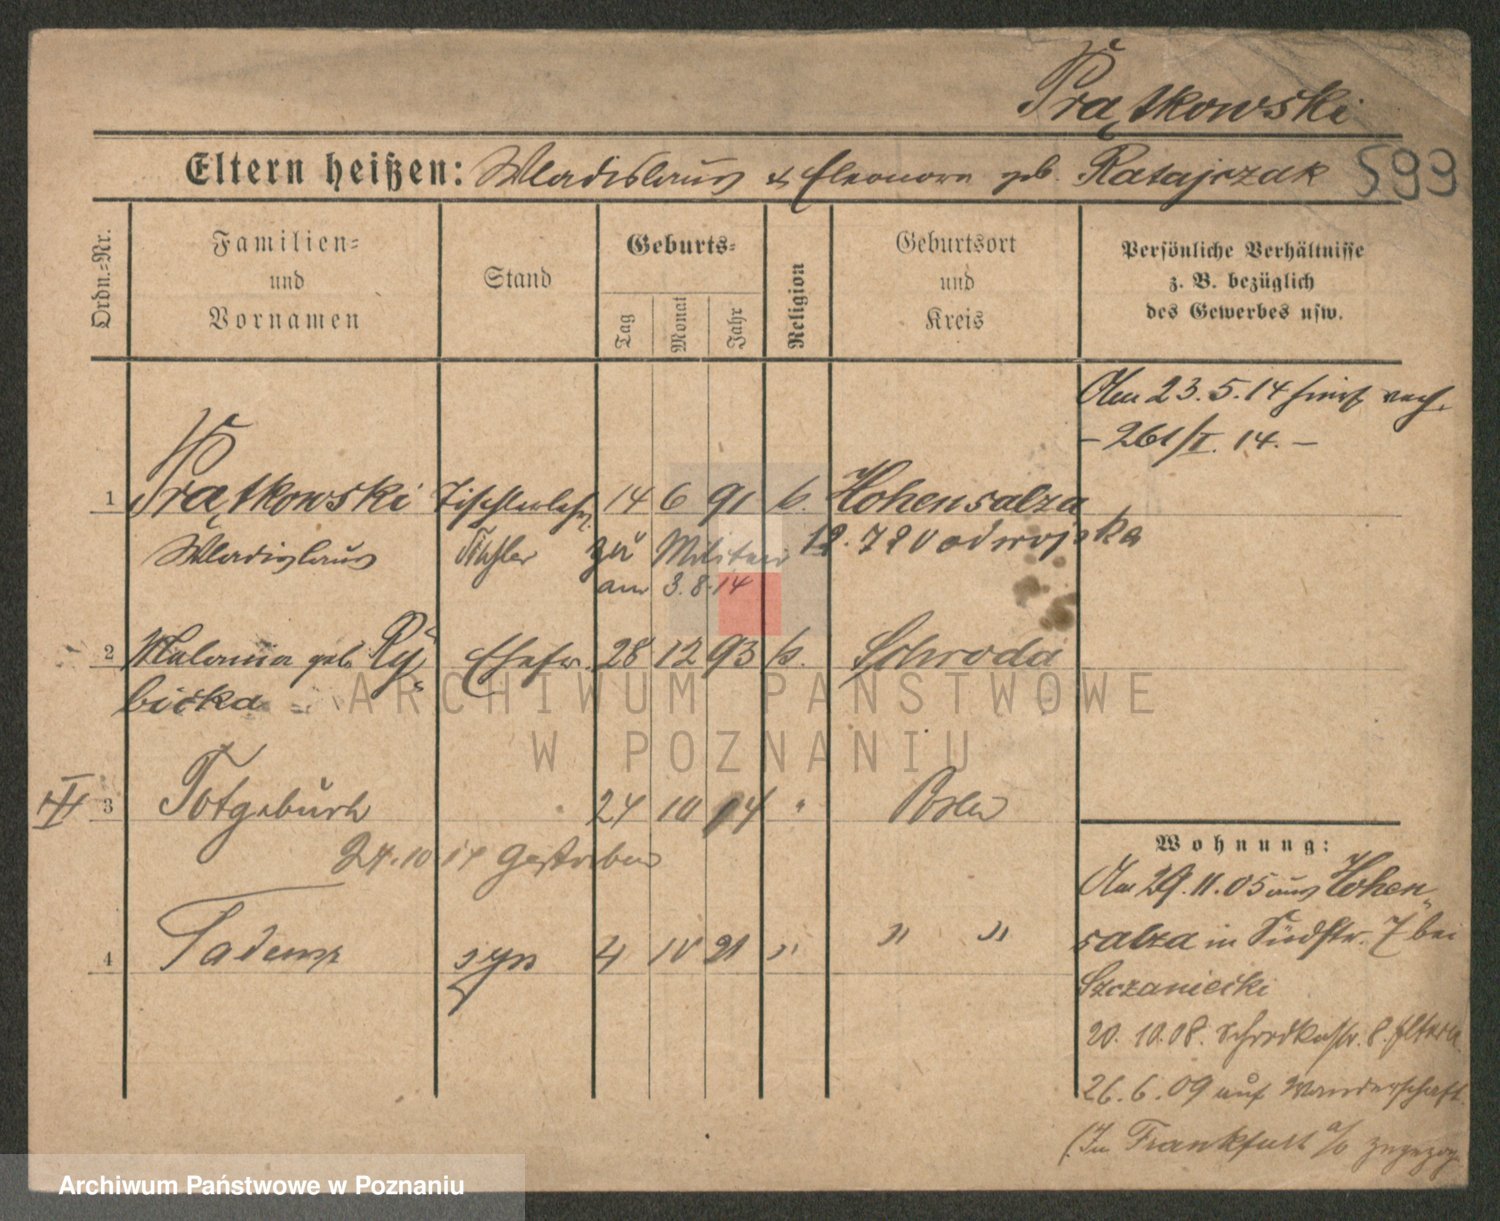 Prątkowski
Eltern heißen: Wladislaus & Eleonora geb. Ratajczak 599
Ordn.-Nr.
Familien-
und
Vornamen
Stand
Geburts-
Tag
Monat
Jahr
Religion
Geburtsort
und
Kreis
Persönliche Verhältnisse
z. B. bezüglich
des Gewerbes usw.
Am 23.5.14
– 261/I. 14. –
1 Prątkowski Tischlerlehr. 14 6 91 k. Hohensalza
Wladislaus Tischler zu Militär
am 3.8.14
2 geb. Ry Ehefr. 28 12 93 k. Schroda
bicka
3 Totgeburt 24 10 14 " Posen
24.10 14 gestorben
4 Tadeusz syn 4 10 21 " " "
Wohnung:
Am 29.11.05 aus Hohen
salza in Südstr. 7 bei
Szczaniecki
20.10.08. 8. Eltern
26.6.09 auf Wanderschaft
(In Frankfurt a/O
ARCHIWUM PAŃSTWOWE
W POZNANIU
Archiwum Państwowe w Poznaniu